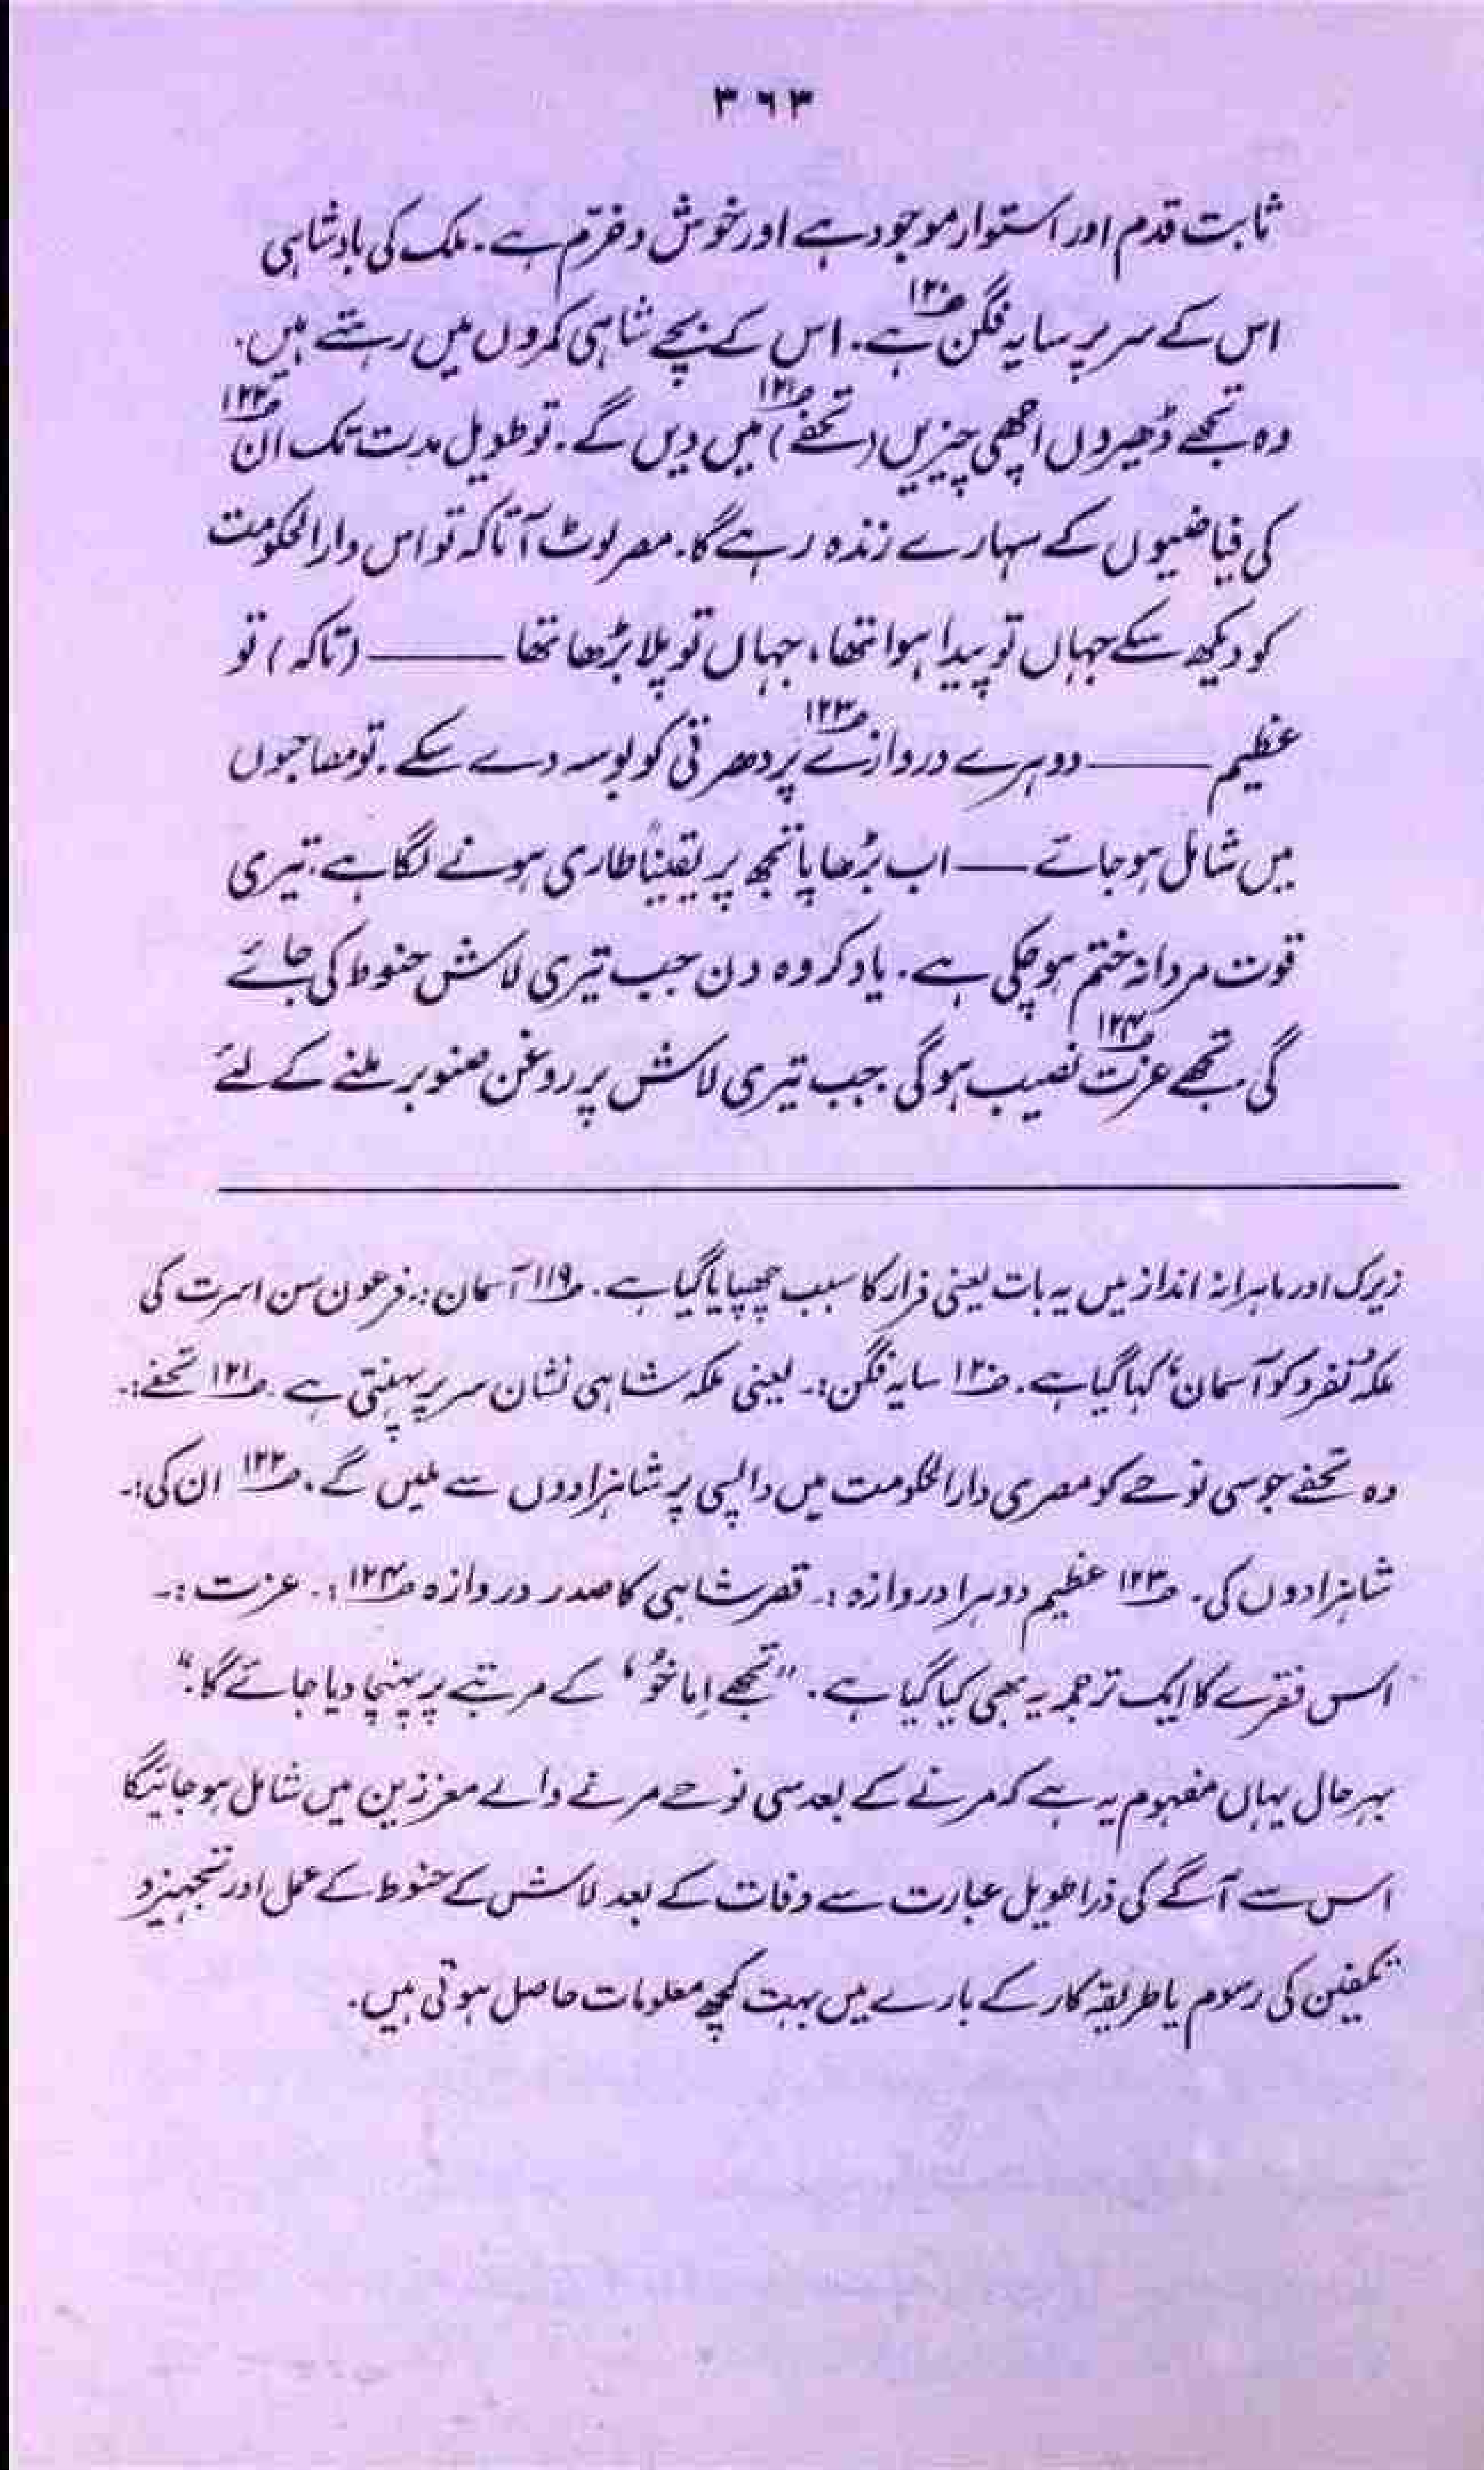 ۳۶۳
ثابت قدم اور استوار موجود ہے اور خوش و خرّم ہے۔ ملک کی بادشاہی
اس کے سر پر سایہ فگن۱۲۰ ہے۔ اس کے بچے شاہی کمروں میں رہتے ہیں۔
وہ تجھے ڈھیروں اچھی چیزیں (تحفے۱۲۱) میں دیں گے۔ تو طویل مدت تک ان۱۲۲
کی فیاضیوں کے سہارے زندہ رہے گا۔ مصر لوٹ آ تاکہ تو اس دارالحکومت
کو دیکھ سکے جہاں تو پیدا ہوا تھا، جہاں تو پلا بڑھا تھا ——— (تاکہ) تو
عظیم ——— دوہرے دروازے۱۲۳ پر دھرتی کو بوسہ دے سکے۔ تو مصاحبوں
میں شامل ہو جائے —— اب بڑھاپا تجھ پر یقیناً طاری ہونے لگا ہے۔ تیری
قوت مردانہ ختم ہو چکی ہے۔ یاد کر وہ دن جب تیری لاش حنوط کی جائے
گی۔ تجھے عزت۱۲۴ نصیب ہو گی جب تیری لاش پر روغن صنوبر ملنے کے لئے
زیرک اور ماہرانہ انداز میں یہ بات یعنی فرار کا سبب چھپایا گیا ہے۔ ص۱۱۹ آسمان:۔ فرعون سن اسرت کی
ملکہ نفرو کو ’آسمان‘ کہا گیا ہے۔ ص۱۲۰ سایہ فگن:۔ یعنی ملکہ شاہی نشان سر پر پہنتی ہے۔ ص۱۲۱ تحفے:۔
وہ تحفے جو سی نوحے کو مصری دارالحکومت میں واپسی پر شاہزادوں سے ملیں گے۔ ص۱۲۲ ان کی:۔
شاہزادوں کی۔ ص۱۲۳ عظیم دوہرا دروازہ:۔ قصر شاہی کا صدر دروازہ ص۱۲۴:۔ عزت:۔
اس فقرے کا ایک ترجمہ یہ بھی کیا گیا ہے۔ "تجھے اِماخُو‘ کے مرتبے پر پہنچا دیا جائے گا۔"
بہرحال یہاں مفہوم یہ ہے کہ مرنے کے بعد سی نوحے مرنے والے معززین میں شامل ہو جائیگا
اس سے آگے کی ذرا طویل عبارت سے وفات کے بعد لاش کے حنوط کے عمل اور تجہیز و
تکفین کی رسوم یا طریقہ کار کے بارے میں بہت کچھ معلومات حاصل ہوتی ہیں۔